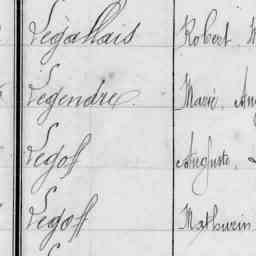 Legallais Robert
Legendre Marie
Legof Auguste
Legoff Mathurin